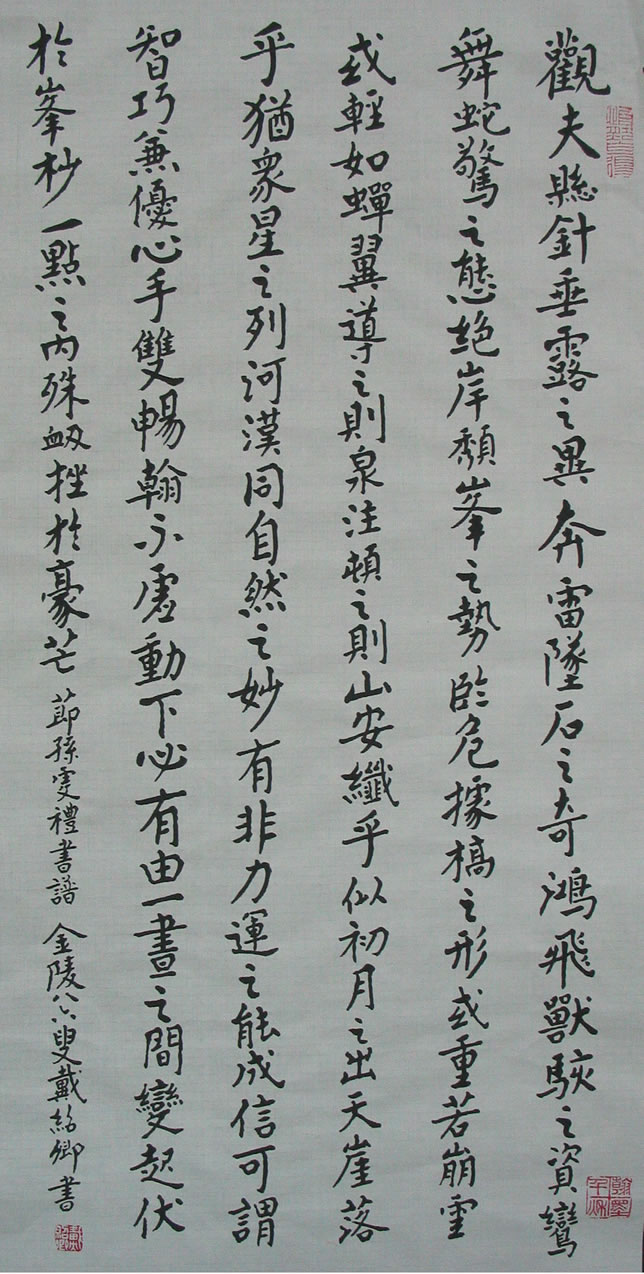 觀夫縣針垂露之異奔雷墜石之奇鴻飛獸駭之資鸞
舞蛇驚之態絕岸頹峯之勢臨危據槁之形或重若崩雲
或輕如蟬翼導之則泉注頓之則山安纖乎似初月之出天崖落
乎猶衆星之列河漢同自然之妙有非力運之能成信可謂
智巧兼優心手雙暢翰不虛動下必有由一畫之間變起伏
於峯杪一點之內殊衂挫於豪芒 節孫虔禮書譜 金陵八六叟戴紹卿書